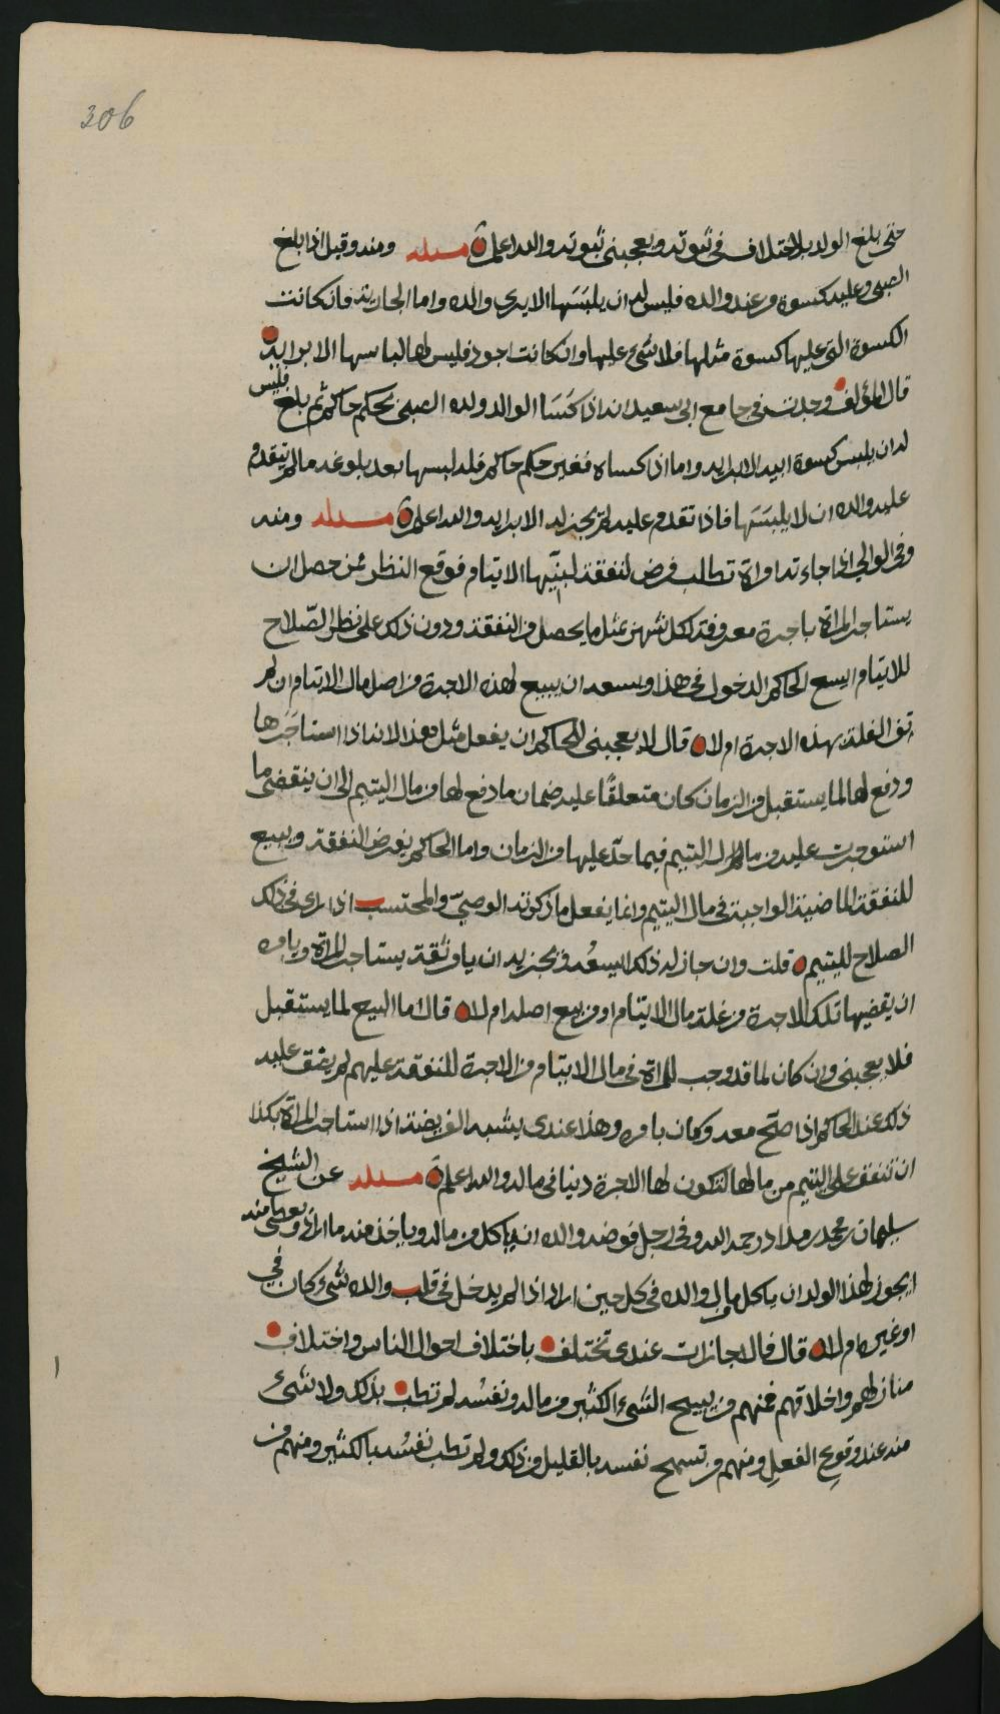 306
حتى بلغ الولد بلا اختلاف في ثبوته ويعجبني ثبوته والله اعلم مسئله ومنه وقيل اذا بلغ
الصبي وعليه كسوة من عند والده فليس له ان يلبسها الا برأي والده واما الجارية فان كانت
الكسوة التي عليها كسوة مثلها فلا شيء عليها وان كانت اجود فليس لها لباسها الا برأيه
قال المؤلف وجدت في جامع ابي سعيد انه اذا كسا الوالد ولده الصبي بحكم حاكم ثم بلغ فليس
له ان يلبس كسوة ابيه الا برأيه واما اذا كساه فغير حكم حاكم فله لبسها بعد بلوغه ما لم يتقدم
عليه والده ان لا يلبسها فاذا تقدم عليه لم يجز له الا برأيه والله اعلم مسئله ومنه
وفي الوالي اذا جاءته امراة تطلب فرض لنفقة لبنيها الايتام فوقع النظر ممن حصل ان
يستاجر المراة باجرة معروفة لكل شهر بمثل ما يحصل من النفقة ودون ذلك على نظر الصلاح
للايتام ايسع الحاكم الدخول في هذا ويسعه ان يبيع لهذه الاجرة من اصل مال الايتام ان لم
تف الغلة بهذه الاجرة ام لا قال لا يعجبني للحاكم ان يفعل مثل هذا لانه اذا استاجرها
ودفع لها لما يستقبل من الزمان كان متعلقا عليه ضمان ما دفع لها من مال اليتيم الى ان ينقضي ما
استوجبت عليه من مال اليتيم فيما حد عليها من الزمان واما الحاكم يفرض النفقة ويبيع
للنفقة الماضية الواجبة في مال اليتيم وانما يفعل ما ذكرته الوصي والمحتسب اذا رأى في ذلك
الصلاح لليتيم قلت وان جاز له ذلك ايسعه ويجزيه ان يامر ثقة يستاجر المراة ويامره
ان يقضيها تلك الاجرة من غلة مال الايتام او من بيع اصله ام لا قال اما البيع لما يستقبل
فلا يعجبني وان كان لما قد وجب للمراة في مال الايتام من الاجرة للنفقة عليهم لم يضق عليه
ذلك عند الحاكم اذا صح معه وكان بامره وهذا عندي يشبه الفريضة اذا استاجر المراة بكذا
ان تنفق على اليتيم من مالها لتكون لها الاجرة دينا في ماله والله اعلم مسئله عن الشيخ
سليمان بن محمد بن مداد رحمه الله وفي رجل فوضه والده انه ياكل من ماله وياخذ منه ما اراد ويعطي منه
ايجوز لهذا الولد ان ياكل مال والده في كل حين اراد اذا لم يدخل في قلب والده شيء وكان في
او غيره ام لا قال فالاجازات عندي تختلف باختلاف احوال الناس واختلاف
منازلهم واخلاقهم فمنهم من يبيح الشيء الكثير من ماله ونفسه لم تطب بذلك ولا شيء
منه عند وقوع الفعل ومنهم من تسمح نفسه بالقليل من ذلك ولم تطب نفسه بالكثير ومنهم من